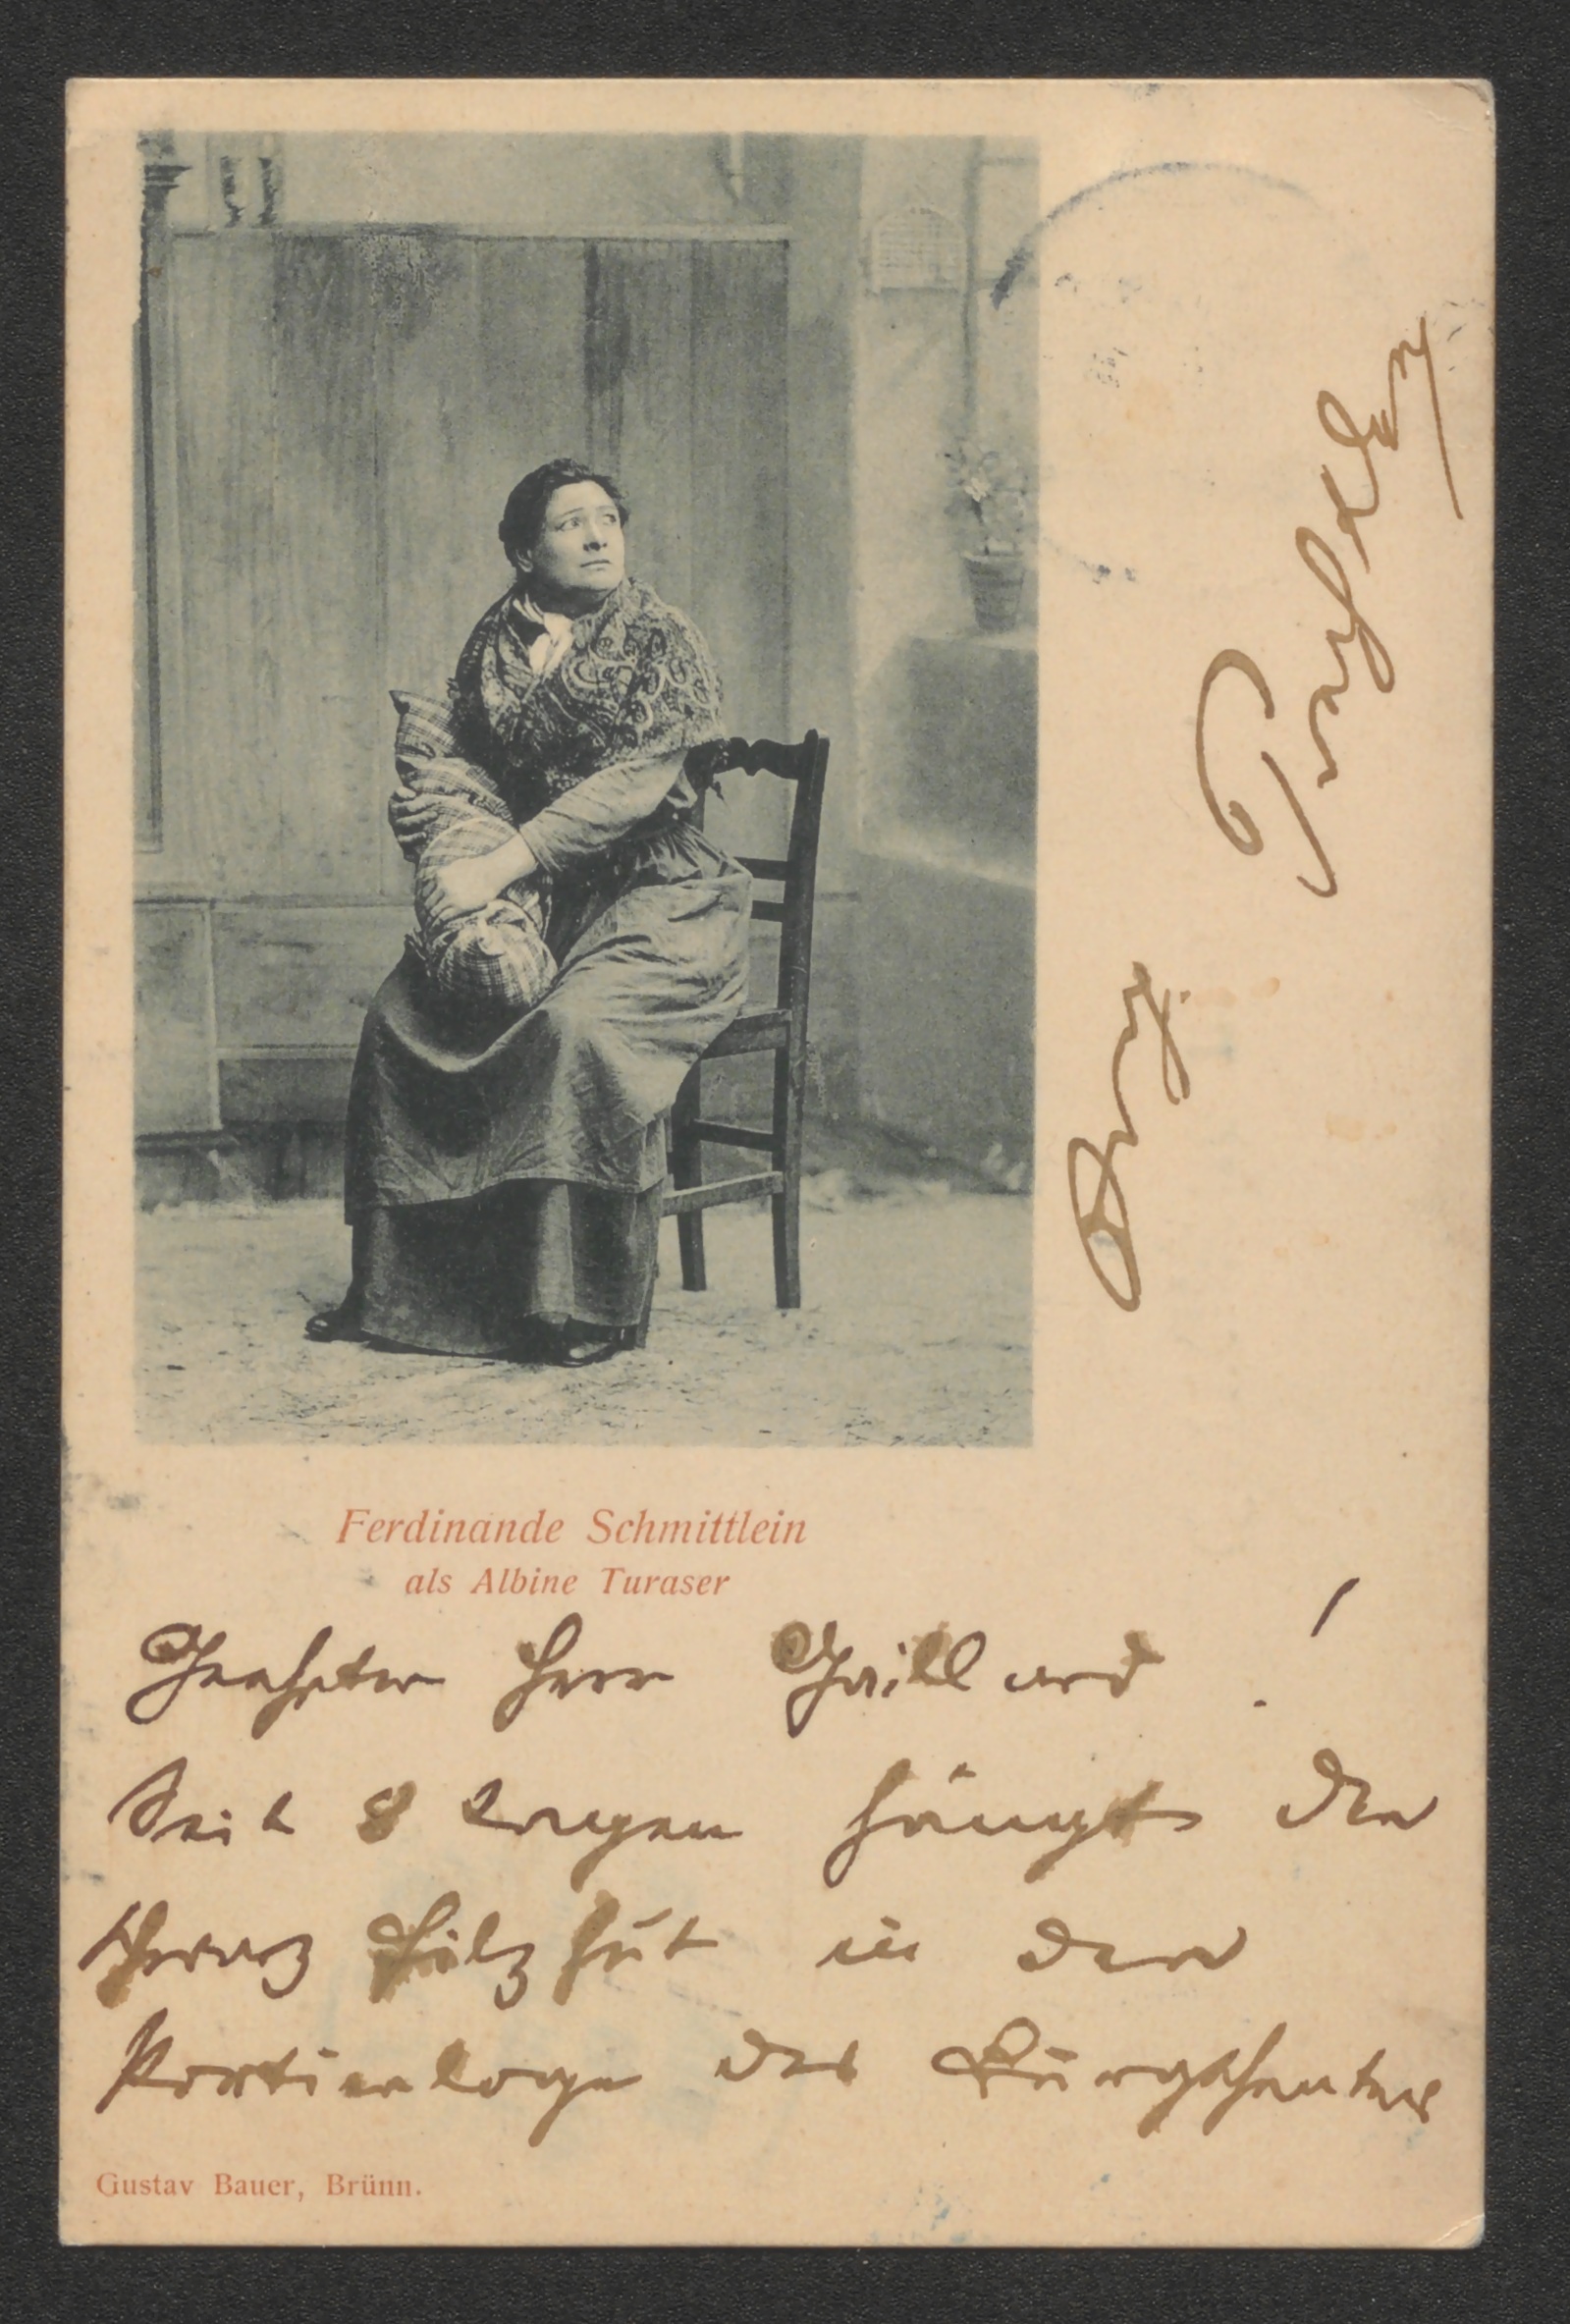 Ferdinande Schmittlein
als Albine Turaser
Geehrter Herr Gaillard!
Seit 8 tagen hängt der
schwarz Filzhut in der
Portierloge des Burgtheaters
Gustav Bauer, Brünn.